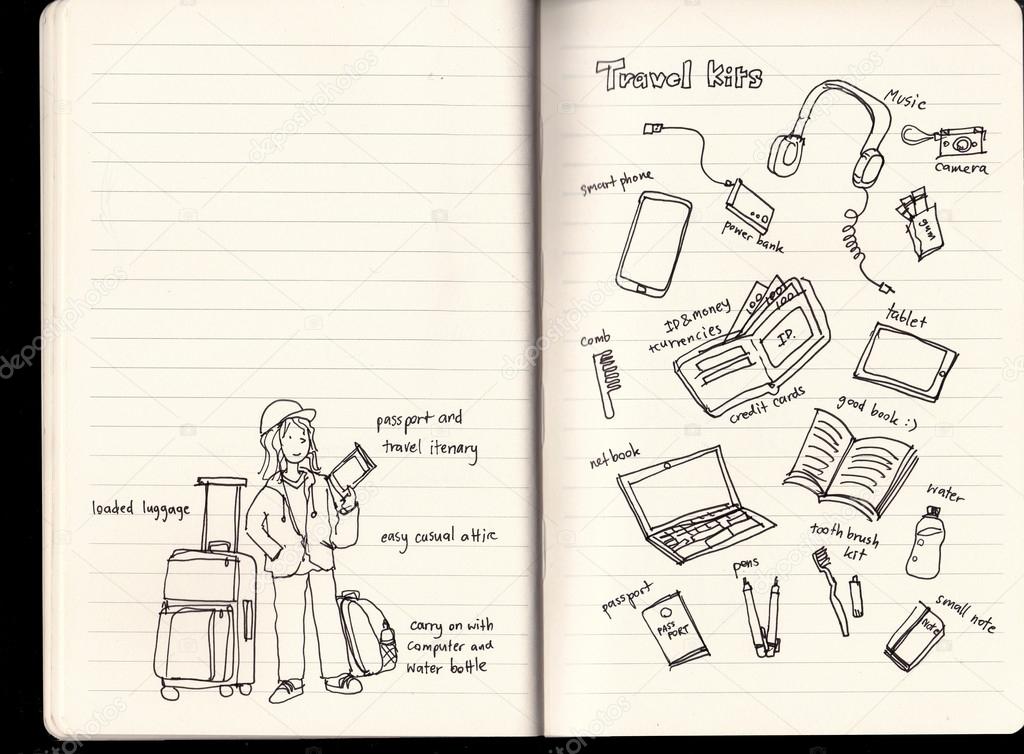 passport and
travel itenary
loaded luggage
easy casual attire
carry on with
computer and
water bottle
Travel Kits
Music
camera
smart phone
power bank
gum
ID & money
+currencies
ID.
credit cards
comb
tablet
good book :)
netbook
water
tooth brush
kit
pens
passport
PASS
PORT
small note
note
depositphotos